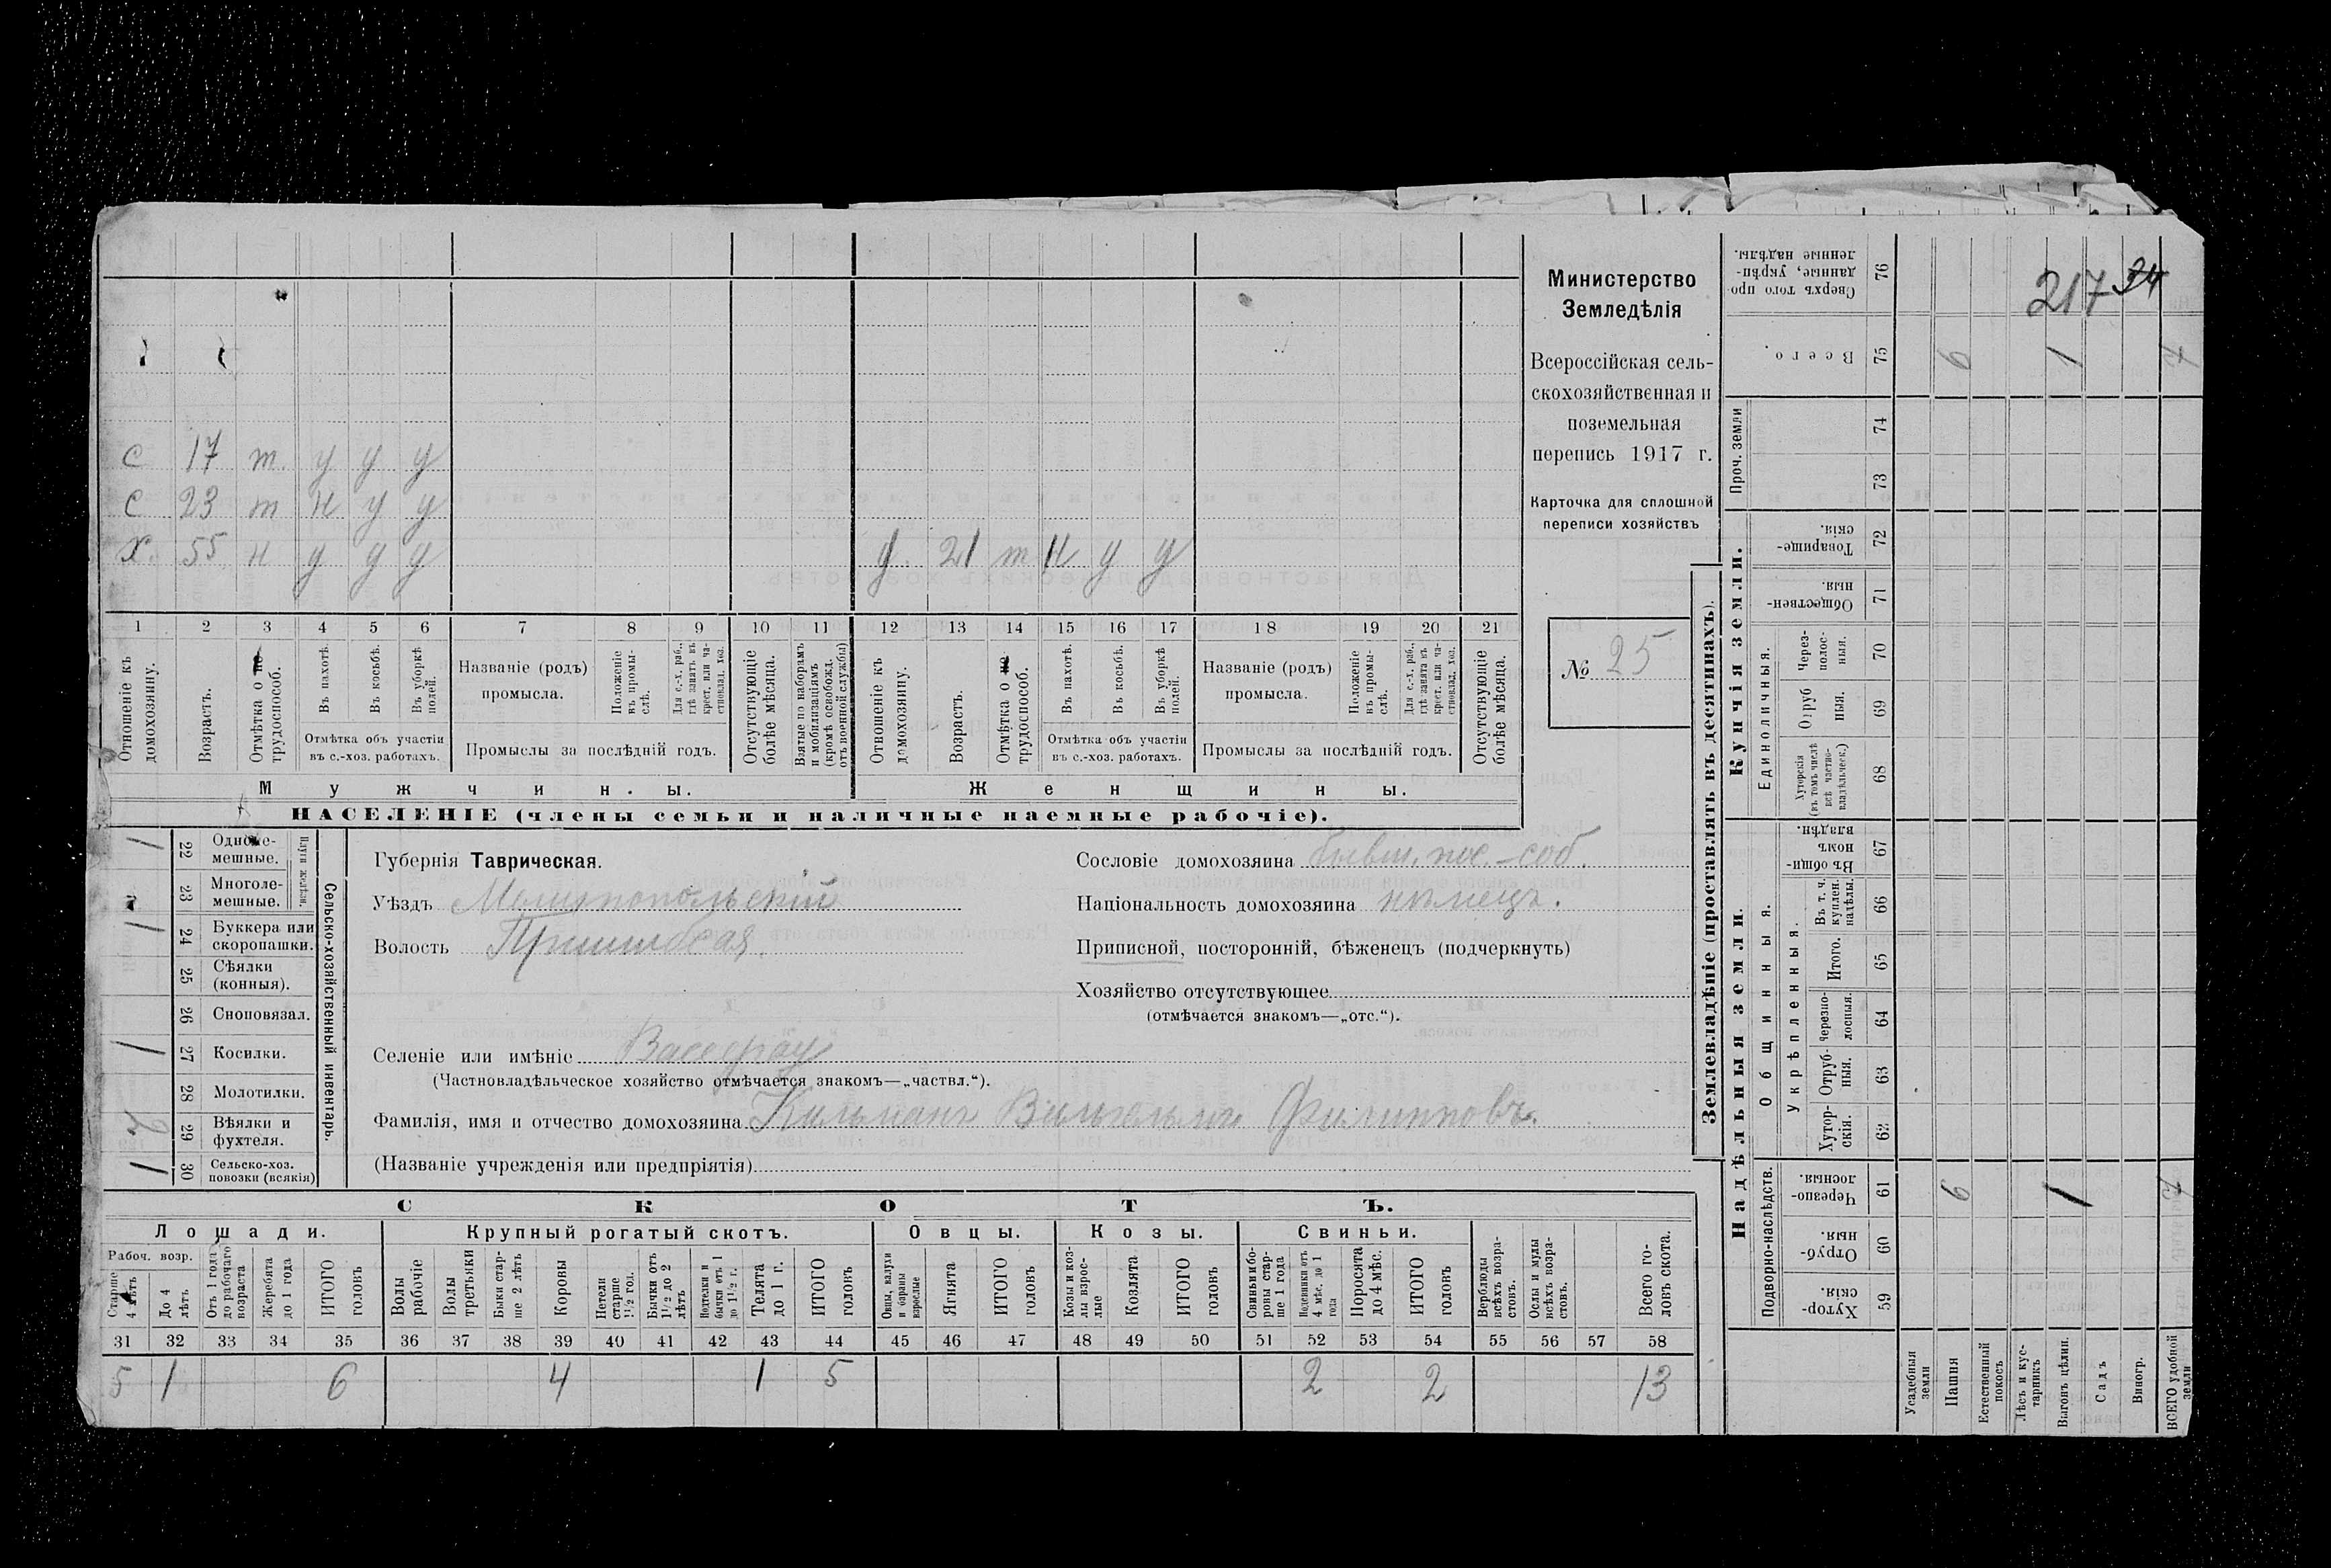 217 34
с 17 т. у у у
с 23 т н у у
х. 55 н у у у д. 21 т н у у
1 2 3 4 5 6 7 8 9 10 11 12 13 14 15 16 17 18 19 20 21
Отношеніе къ домохозяину.
Возрастъ.
Отмѣтка о не трудоспособ.
Въ пахотѣ.
Въ косьбѣ.
Въ уборкѣ полей.
Отмѣтка объ участіи
въ с.-хоз. работахъ.
Названіе (родъ)
промысла.
Положеніе въ промы-слѣ.
Для с.-х. раб., гдѣ занятъ въ крест. или ча-стновлад. хоз.
Промыслы за послѣдній годъ.
Отсутствующіе болѣе мѣсяца.
Взятые по наборамъ и мобилизаціямъ (кромѣ освобожд. отъ военной службы)
Отношеніе къ домохозяину.
Возрастъ.
Отмѣтка о не трудоспособ.
Въ пахотѣ.
Въ косьбѣ.
Въ уборкѣ полей.
Отмѣтка объ участіи
въ с.-хоз. работахъ.
Названіе (родъ)
промысла.
Положеніе въ промы-слѣ.
Для с.-х. раб., гдѣ занята въ крест. или ча-стновлад. хоз.
Промыслы за послѣдній годъ.
Отсутствующіе болѣе мѣсяца.
Мужчины.
Женщины.
НАСЕЛЕНІЕ (члены семьи и наличные наемные рабочіе).
Министерство
Земледѣлія
Всероссійская сель-
скохозяйственная и
поземельная
перепись 1917 г.
Карточка для сплошной
переписи хозяйствъ
№ 25
1 22 Одноле-мешные.
23 Многоле-мешные.
Плуги желѣзн.
1 24 Буккера или скоропашки.
25 Сѣялки (конныя).
26 Сноповязал.
1 27 Косилки.
28 Молотилки.
2 29 Вѣялки и фухтеля.
1 30 Сельско-хоз. повозки (всякія)
Сельско-хозяйственный инвентарь.
Губернія Таврическая.
Уѣздъ Мелитопольскій
Волость Пришибская
Сословіе домохозяина бывш. пос.-соб.
Національность домохозяина нѣмецъ.
Приписной, посторонній, бѣженецъ (подчеркнуть)
Хозяйство отсутствующее
(отмѣчается знакомъ—„отс.“).
Селеніе или имѣніе Васерау
(Частновладѣльческое хозяйство отмѣчается знакомъ—„частвл.“).
Фамилія, имя и отчество домохозяина Кильманъ Вильгельмъ Филипповъ.
(Названіе учрежденія или предпріятія)
СКОТЪ.
Лошади.
Крупный рогатый скотъ.
Овцы.
Козы.
Свиньи.
Рабоч. возр.
Старше 4 лѣтъ
До 4 лѣтъ
Отъ 1 года до рабочаго возраста
Жеребята до 1 года
ИТОГО головъ
Волы рабочіе
Волы третьяки
Быки стар-ше 2 лѣтъ
Коровы
Нетели старше 1½ год.
Бычки отъ 1½ до 2 лѣтъ
Нетели и бычки отъ 1 до 1½ г.
Телята до 1 г.
ИТОГО головъ
Овцы, валухи и бараны взрослые
Ягнята
ИТОГО головъ
Козы и коз-лы взрос-лые
Козлята
ИТОГО головъ
Свиньи и бо-ровы стар-ше 1 года
Подсвинки отъ 4 мѣс. до 1 года
Поросята до 4 мѣс.
ИТОГО головъ
Верблюды всѣхъ возра-стовъ.
Ослы и мулы всѣхъ возра-стовъ.
Всего го-ловъ скота.
31 32 33 34 35 36 37 38 39 40 41 42 43 44 45 46 47 48 49 50 51 52 53 54 55 56 57 58
5 1 6 4 1 5 2 2 13
Землевладѣніе (проставлять въ десятинахъ).
Купчія земли.
Надѣльныя земли.
76 Сверхъ того про-данные, укрѣп-ленные надѣлы.
75 Всего. 6 1
Проч. земли
74
73
72 Товарище-скія.
71 Обществен-ныя.
Единоличныя.
70 Через-полос-ныя.
69 Отруб ныя.
68 Хуторскія (въ томъ числѣ всѣ частно-владѣльческ.)
Общинныя.
67 Въ общи-номъ владѣн.
Укрѣпленныя.
66 Въ т. ч. куплен. надѣлы.
65 Итого.
64 Черезпо-лосныя.
63 Отруб-ныя.
62 Хутор-скія.
Подворно-наслѣдств.
61 Черезпо-лосныя. 6 1
60 Отруб-ныя.
59 Хутор-скія.
Усадебныя земли
Пашня
Естественный покосъ
Лѣсъ и кус-тарникъ
Выгонъ цѣлин.
Садъ
Виногр.
ВСЕГО удобной земли